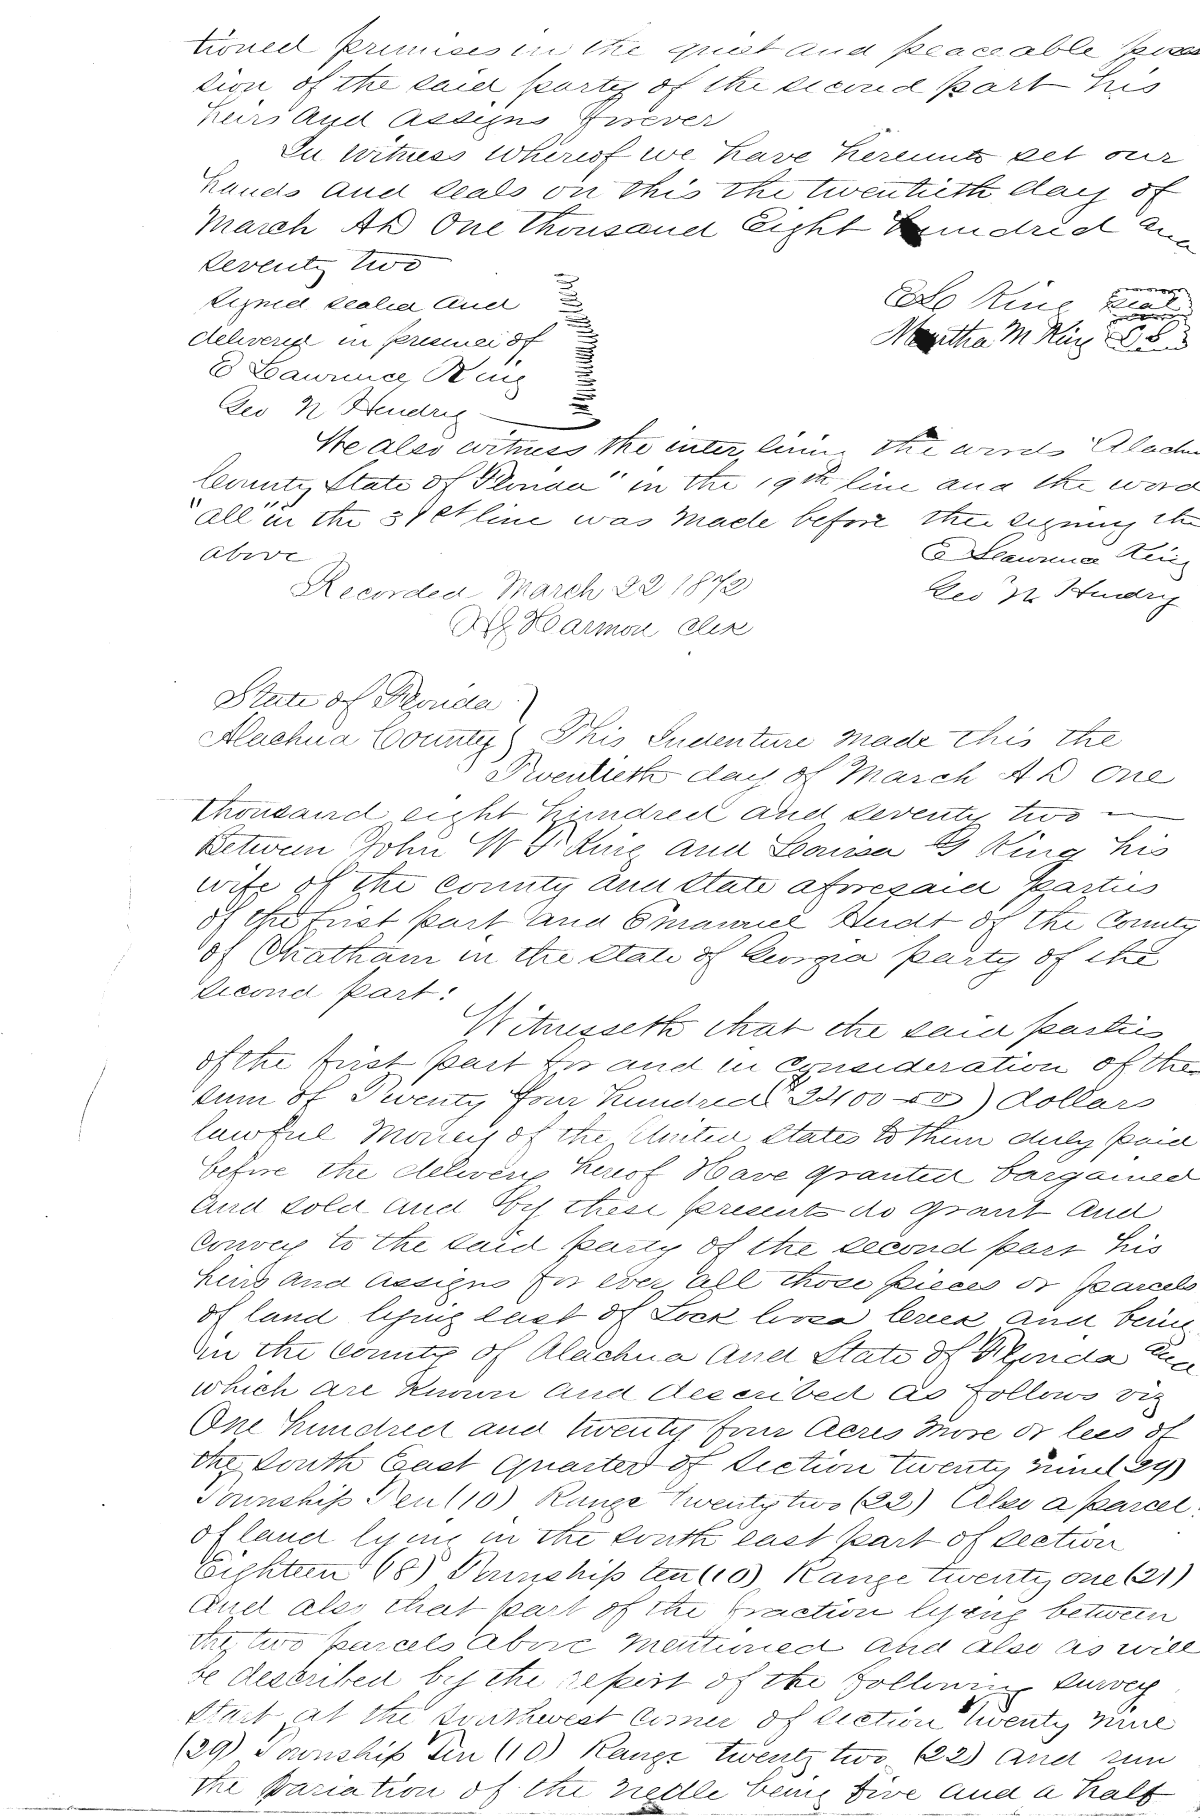 tioned premises in the quiet and peaceable posses
sion of the said party of the second part his
heirs and assigns forever
In Witness whereof we have hereunto set our
hands and seals on this the twentieth day of
March AD One thousand Eight hundred and
seventy two
signed sealed and
delivered in presence of
E Lawrence King
Geo N Hendry
King seal
Martha M King L S
We also witness the inter lining the words "Alachua
County State of Florida" in the 19th line and the word
"all" in the 31st line was made before the signing the
above
E Lawrence King
Geo N Hendry
Recorded March 22 1872
Harmon Clerk
State of Florida
Alachua County This Indenture made this the
Twentieth day of March AD One
thousand eight hundred and seventy two
Between John W F King and Louisa G King his
wife of the County and State aforesaid parties
of the first part and Emanuel Heidt of the County
of Chatham in the State of Georgia party of the
second part:
Witnesseth that the said parties
of the first part for and in consideration of the
sum of Twenty four hundred ($2400.00) dollars
lawful money of the United States to them duly paid
before the delivery hereof Have granted bargained
and sold and by these presents do grant and
convey to the said party of the second part his
heirs and assigns for ever all those pieces or parcels
of land lying east of Lock loosa Creek and being
in the County of Alachua and State of Florida and
which are known and described as follows viz
One hundred and twenty four Acres more or less of
the South East quarter of Section twenty nine (29)
Township Ten (10) Range twenty two (22) Also a parcel
of land lying in the south east part of section
Eighteen (18) Township ten (10) Range twenty one (21)
and also that part of the fraction lying between
the two parcels above mentioned and also as will
be described by the report of the following survey
start at the southwest corner of section twenty nine
(29) Township Ten (10) Range twenty two (22) and run
the variation of the needle being five and a half